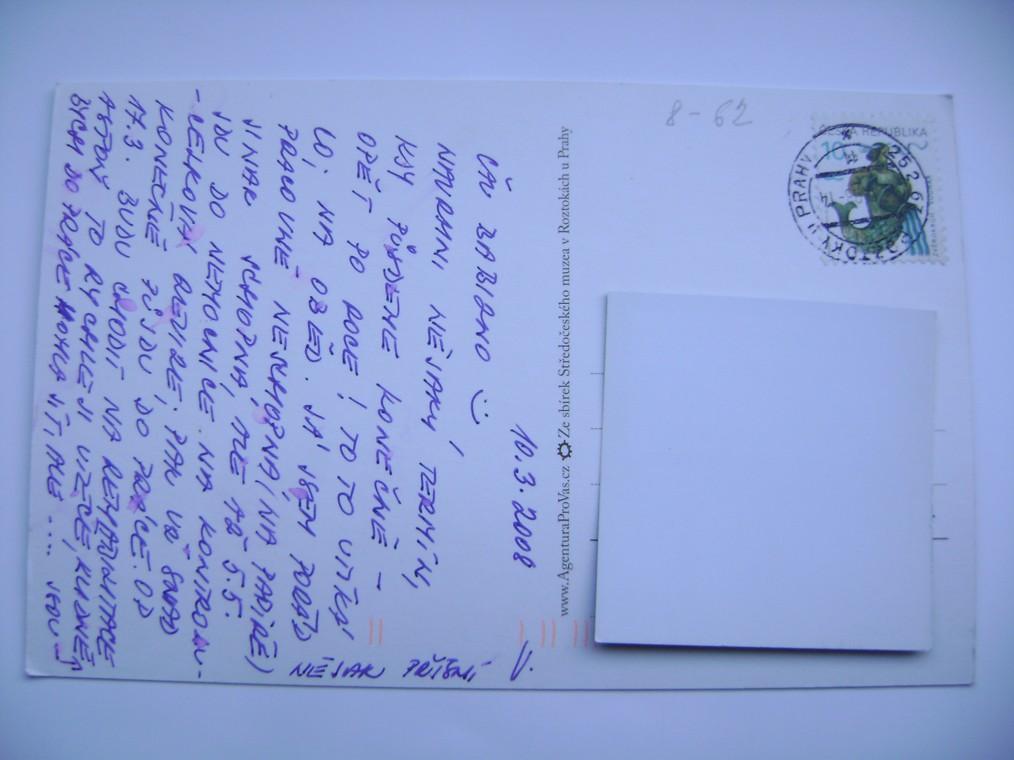 10.3.2008
ČAU BABIONO :-)
NAVRHNI NĚJAKÝ TERMÍN,
KDY PŮJDEME KONEČNĚ -
OPĚT PO ROCE! TO TO UTÍKÁ
CO, NA OBĚD. JÁ JSEM POŘÁD
PRACOVNĚ NESCHOPNÁ (NA PAPÍŘE)
JINAK SCHOPNÁ, ALE AŽ 5.5.
JDU DO NEMOCNICE NA KONTROLU
- CELKOVÁ REVIZE, PAK UŽ SNAD
KONEČNĚ PŮJDU DO PRÁCE. OD
17.3. BUDU CHODIT NA REHABILITACE
ABYCH TO RYCHLEJI VLÉČE, KLIDNĚ
BYCH DO PRÁCE MOHLA JÍT ALE .... JSOU
NĚJAK PŘÍSNÍ
J.
www.AgenturaProVas.cz Ze sbírek Středočeského muzea v Roztokách u Prahy
8-62
ČESKÁ REPUBLIKA
10
ROZTOKY U PRAHY
252 63